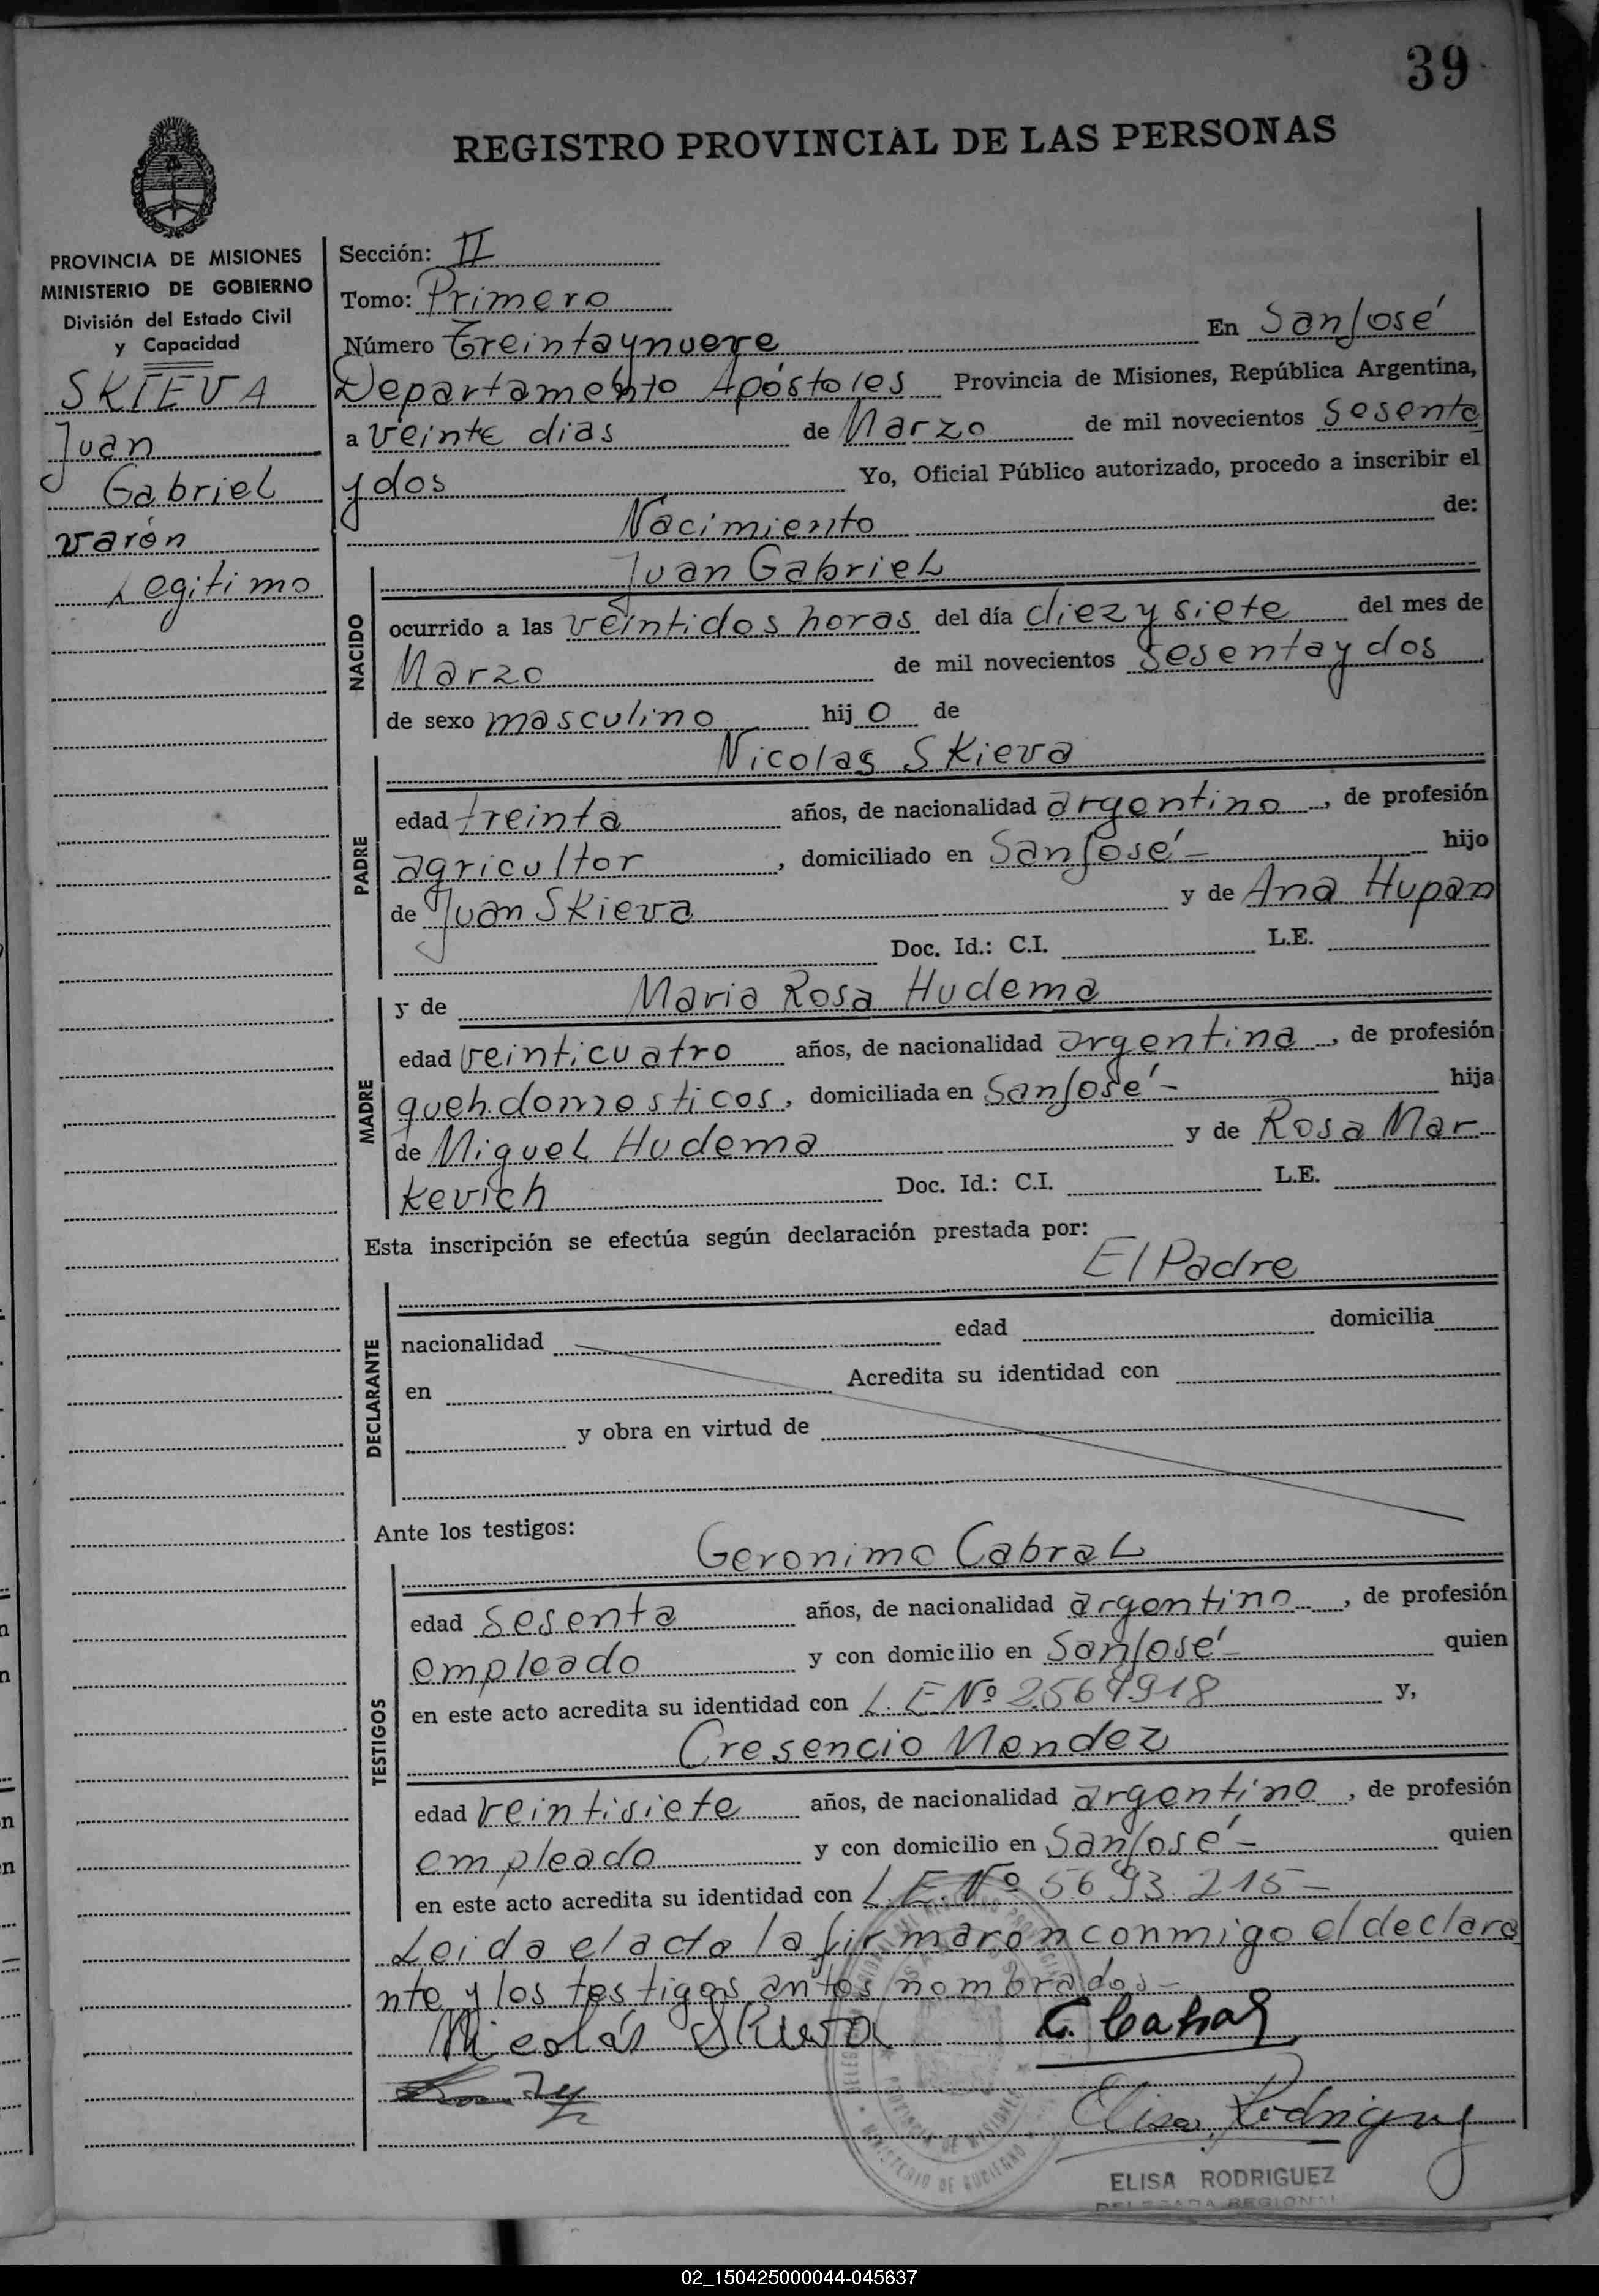 39
REGISTRO PROVINCIAL DE LAS PERSONAS
PROVINCIA DE MISIONES
MINISTERIO DE GOBIERNO
División del Estado Civil
y Capacidad
SKIEVA
Juan
Gabriel
varón
Legitimo
Sección: II
Tomo: Primero
Número Treinta y nueve En San José
Departamento Apóstoles Provincia de Misiones, República Argentina,
a veinte dias de Marzo de mil novecientos Sesenta
y dos Yo, Oficial Público autorizado, procedo a inscribir el
Nacimiento de:
Juan Gabriel
NACIDO
ocurrido a las veintidos horas del día diez y siete del mes de
Marzo de mil novecientos Sesenta y dos
de sexo masculino hij o de
Nicolas Skieva
PADRE
edad treinta años, de nacionalidad argentino, de profesión
agricultor, domiciliado en San José - hijo
de Juan Skieva y de Ana Hupan
Doc. Id.: C.I. L.E.
y de Maria Rosa Hudema
MADRE
edad veinticuatro años, de nacionalidad argentina, de profesión
queh. domesticos, domiciliada en San José - hija
de Miguel Hudema y de Rosa Mar
kevich Doc. Id.: C.I. L.E.
Esta inscripción se efectúa según declaración prestada por:
El Padre
DECLARANTE
nacionalidad edad domicilia
en Acredita su identidad con
y obra en virtud de
Ante los testigos:
Geronimo Cabral
TESTIGOS
edad Sesenta años, de nacionalidad argentino, de profesión
empleado y con domicilio en San José - quien
en este acto acredita su identidad con L. E. Nº 2.564918 y,
Cresencio Mendez
edad veintisiete años, de nacionalidad argentino, de profesión
empleado y con domicilio en San José - quien
en este acto acredita su identidad con L. E. Nº 5693.215 -
Leida el acta la firmaron conmigo el declara
nte y los testigos antes nombrados -
Nicolás Skieva G. Cabral
Elisa Rodriguez
PROVINCIA DE MISIONES
MINISTERIO DE GOBIERNO
ELISA RODRIGUEZ
DELEGADA REGIONAL
02_150425000044-045637